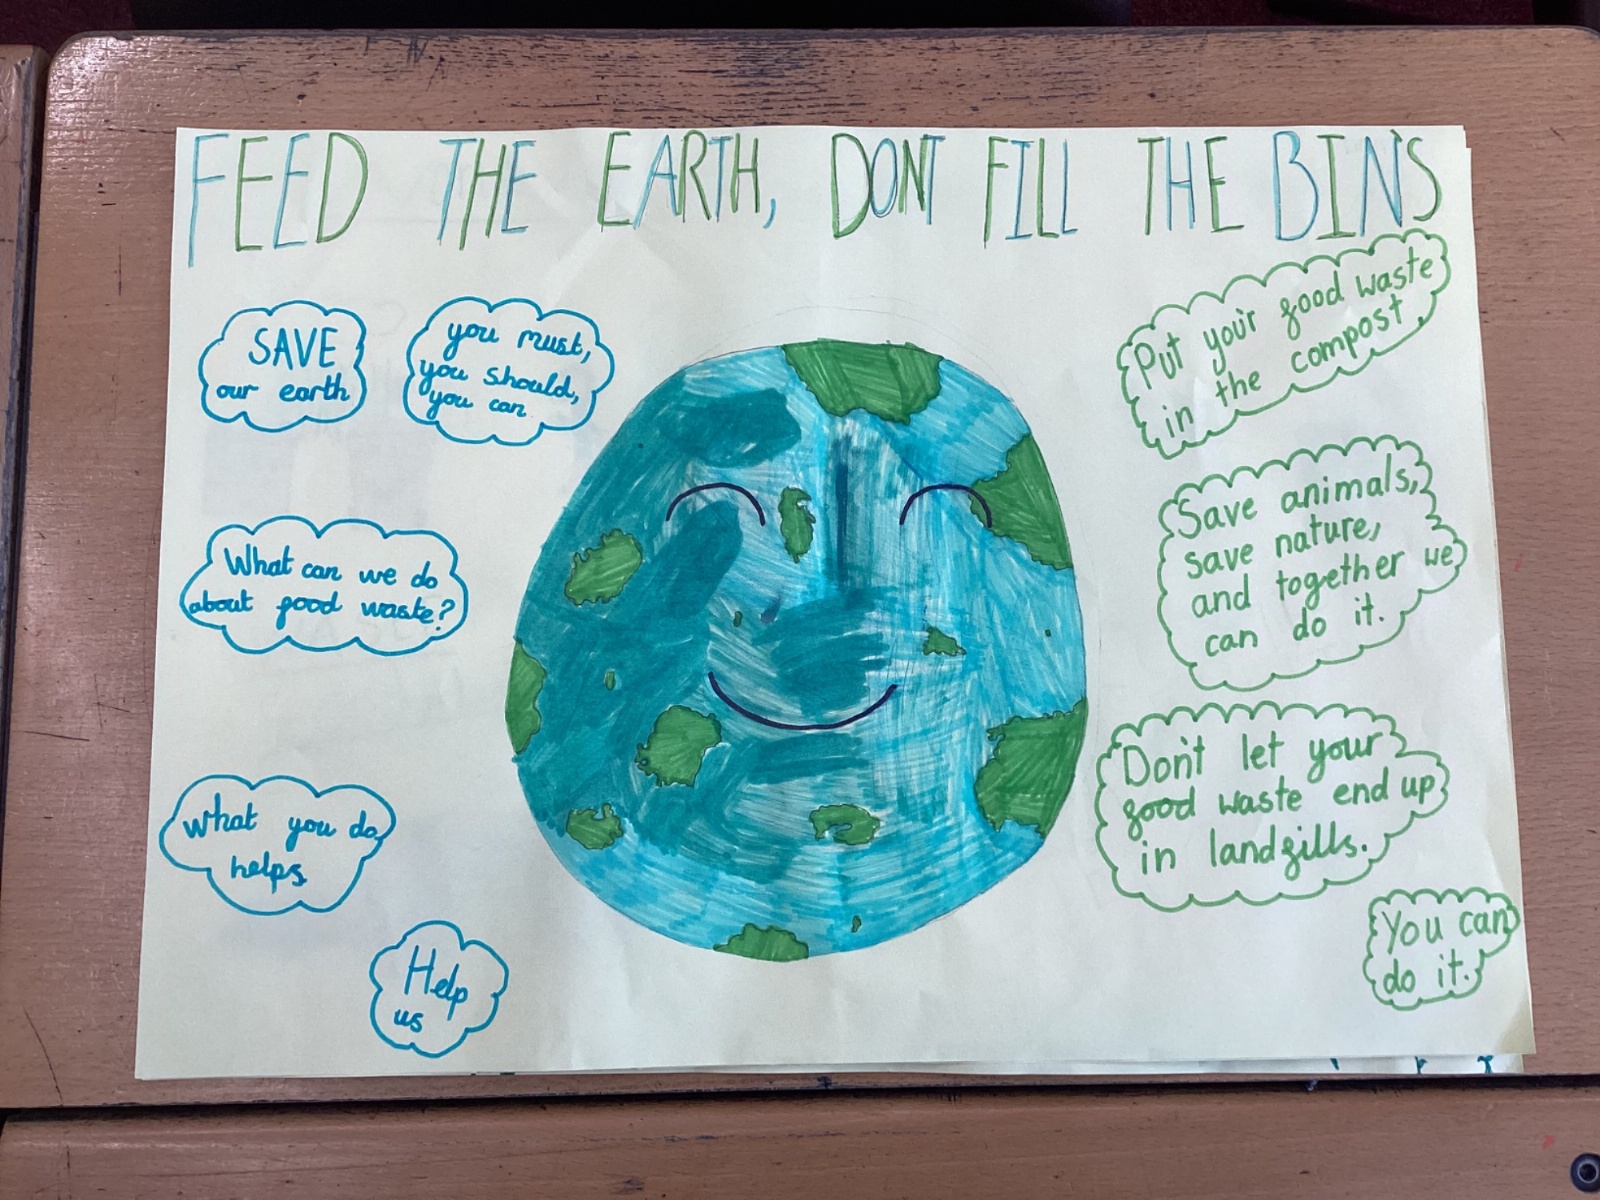 FEED THE EARTH, DONT FILL THE BIN'S
SAVE
our earth
you must,
you should,
you can
What can we do
about food waste?
what you do,
helps
Help
us
Put you'r food waste
in the compost.
Save animals,
save nature,
and together we
can do it.
Don't let your
food waste end up
in landfills.
You can
do it.